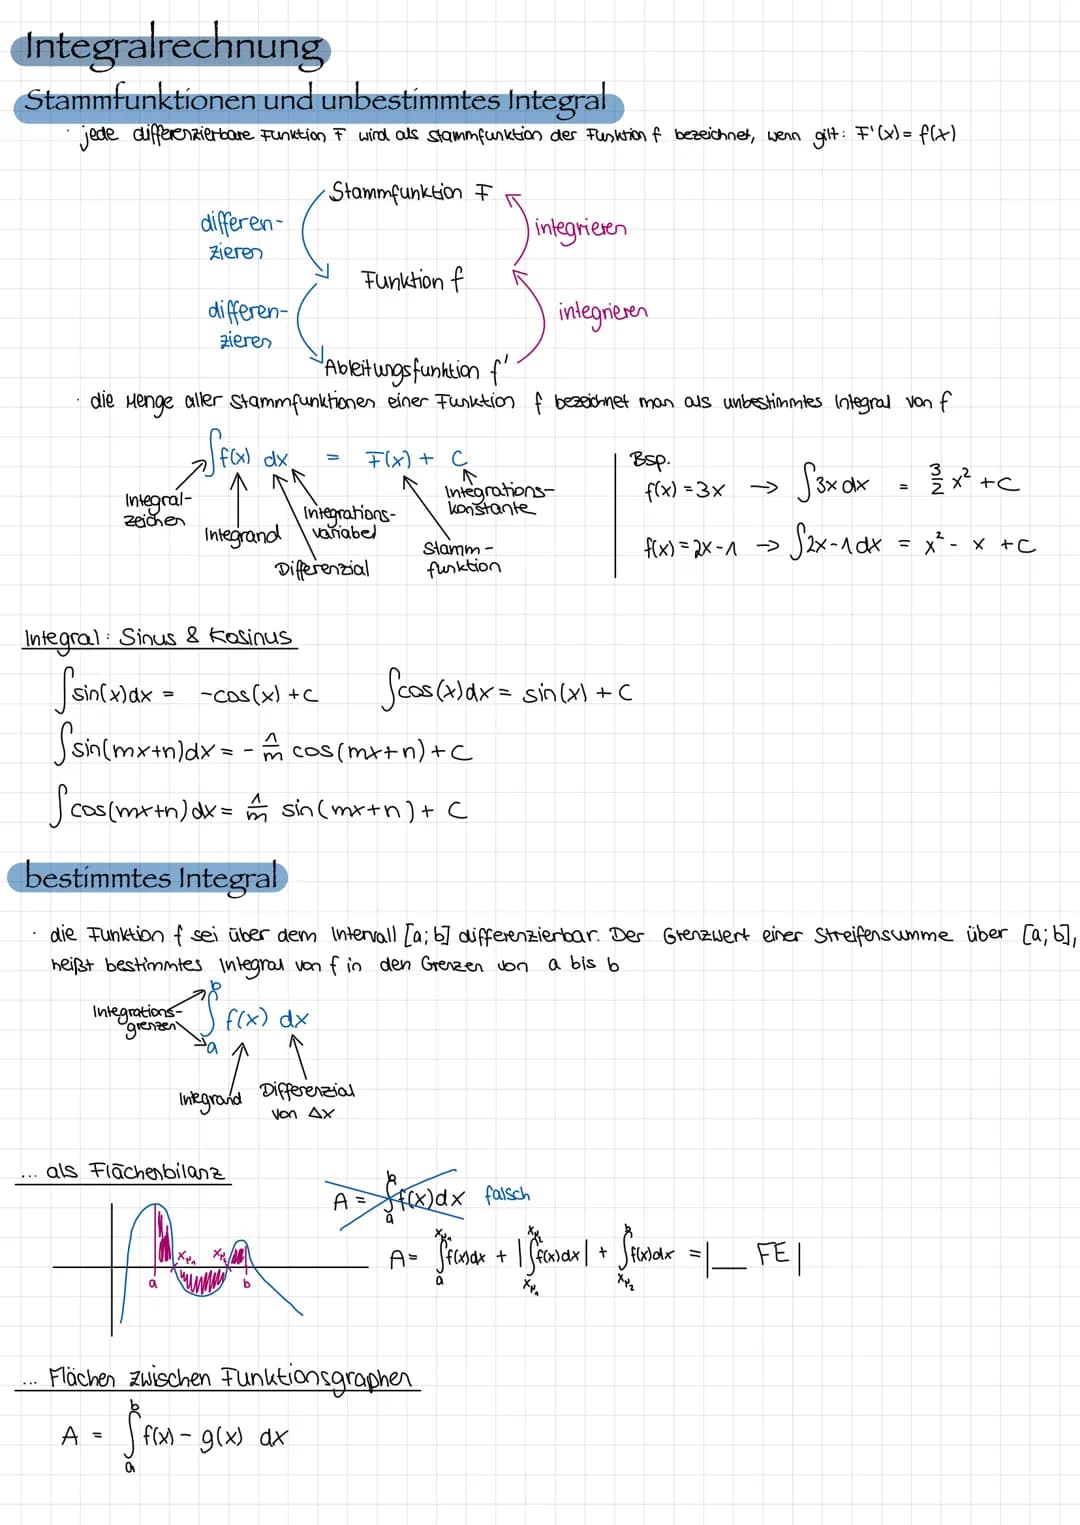 Integralrechnung
Stammfunktionen und unbestimmtes Integral
· jede differenzierbare Funktion F wird als Stammfunktion der Funktion f bezeichnet, wenn gilt: F'(x) = f(x)
Stammfunktion F
differen-
zieren
integrieren
Funktion f
differen-
zieren
integrieren
Ableitungsfunktion f'
· die Menge aller Stammfunktionen einer Funktion f bezeichnet man als unbestimmtes Integral von f
∫f(x) dx = F(x) + C
Integral-
zeichen
Integrand
Integrations-
variabel
Differenzial
Integrations-
konstante
Stamm-
funktion
Bsp.
f(x) = 3x → ∫3x dx = 3/2 x² + C
f(x) = 2x-1 → ∫2x-1 dx = x² - x + C
Integral: Sinus & Kosinus
∫sin(x)dx = -cos(x) + C ∫cos(x)dx = sin(x) + C
∫sin(mx+n)dx = - 1/m cos(mx+n) + C
∫cos(mx+n)dx = 1/m sin(mx+n) + C
bestimmtes Integral
· die Funktion f sei über dem Intervall [a;b] differenzierbar. Der Grenzwert einer Streifensumme über [a;b],
heißt bestimmtes Integral von f in den Grenzen von a bis b
Integrations-
grenzen
b
∫ f(x) dx
a
Integrand
Differenzial
von Δx
... als Flächenbilanz
a x_N₁ x_N₂ b
A = ∫_a^b f(x)dx falsch
A = ∫_a^{x_N₁} f(x)dx + |∫_{x_N₁}^{x_N₂} f(x)dx| + ∫_{x_N₂}^b f(x)dx = |__ FE|
... Flächen zwischen Funktionsgraphen
A = ∫_a^b f(x) - g(x) dx